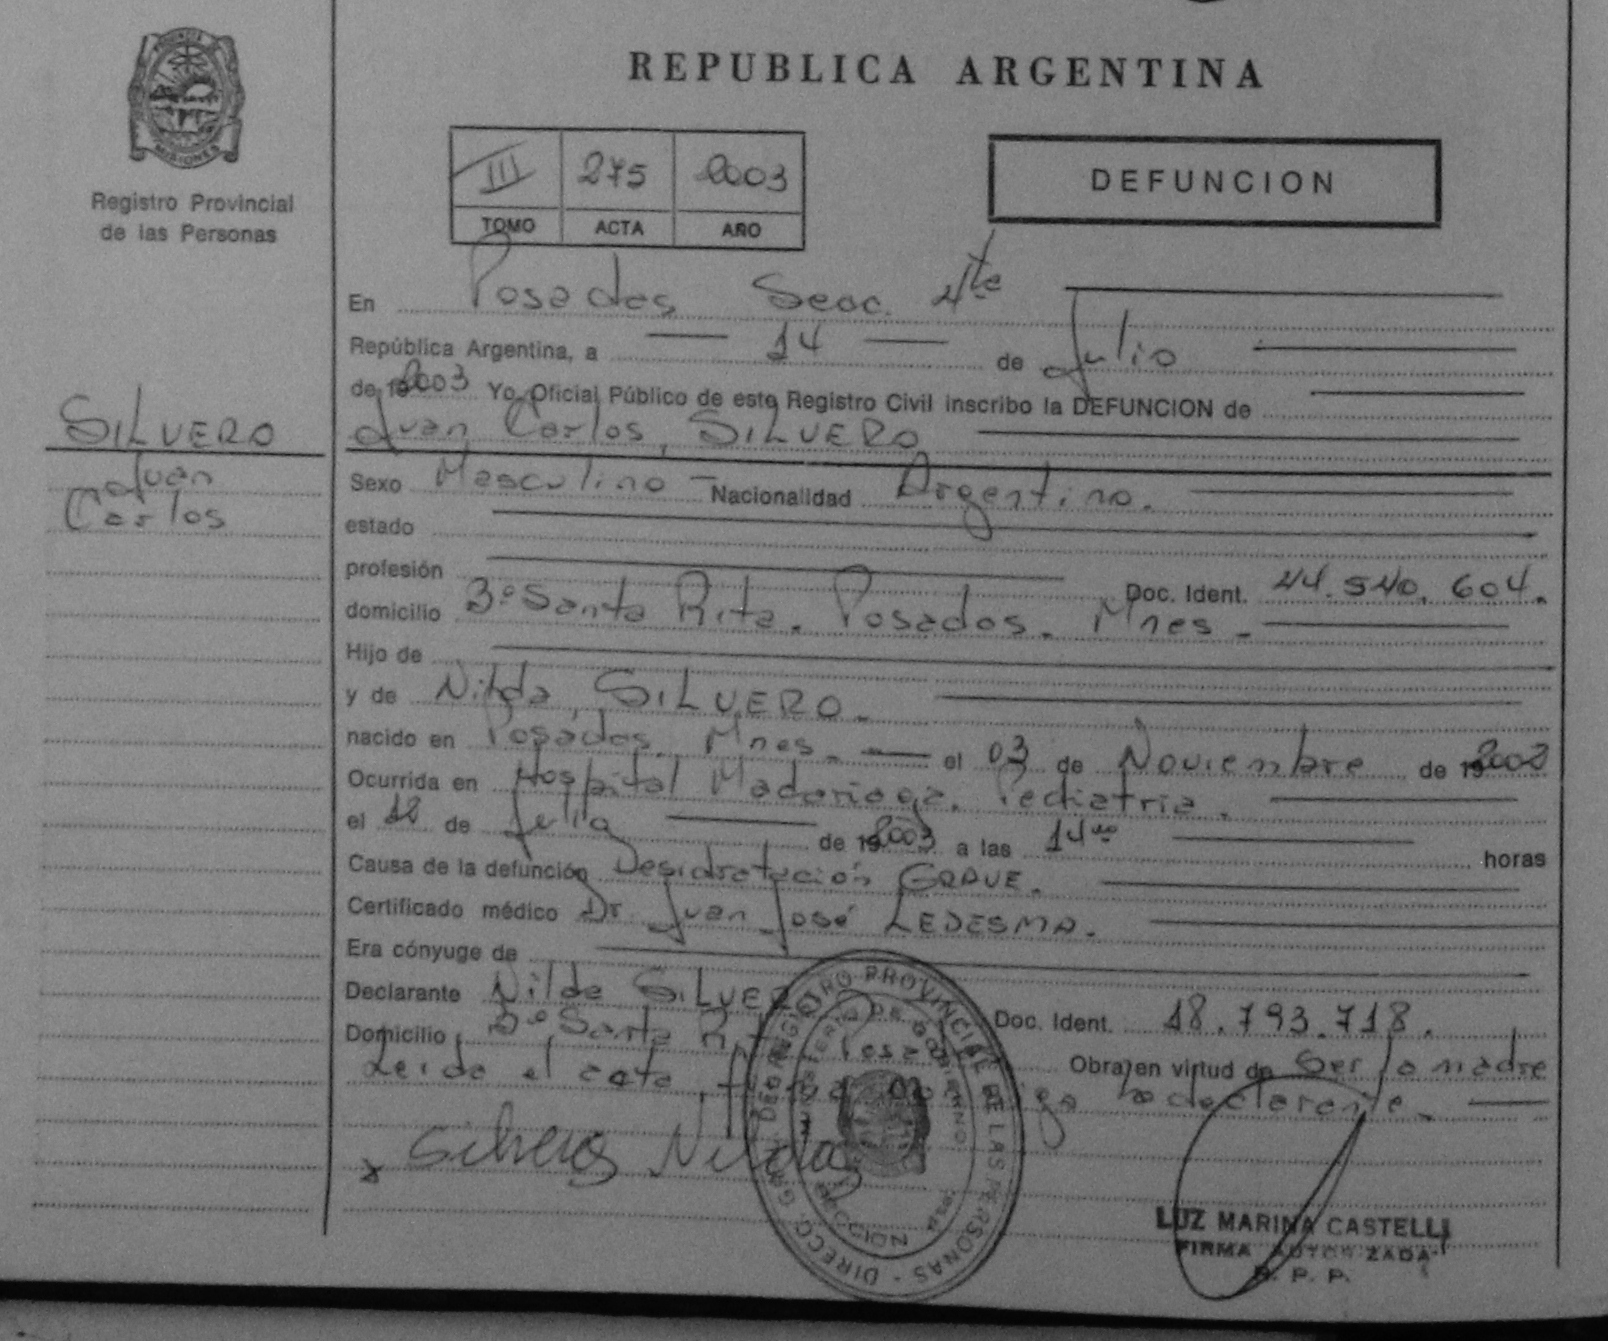 PROVINCIA DE
MISIONES
Registro Provincial
de las Personas
SILVERO
Juan
Carlos
REPUBLICA ARGENTINA
III 275 2003
TOMO ACTA AÑO
DEFUNCION
En Posadas Secc. 4te
República Argentina, a 14 de Julio
de 192003 Yo, Oficial Público de este Registro Civil inscribo la DEFUNCION de
Juan Carlos, SILVERO
Sexo Masculino Nacionalidad Argentino.
estado
profesión Doc. Ident. 44.540.604.
domicilio Bº Santa Rita. Posadas. Mnes.
Hijo de
y de Nilda, SILVERO.
nacido en Posadas. Mnes. el 03 de Noviembre de 192002
Ocurrida en Hospital Madariaga. Pediatria.
el 12 de Julio de 192003 a las 14 horas
Causa de la defunción Desidratación GRAVE.
Certificado médico Dr. Juan José LEDESMA.
Era cónyuge de
Declarante Nilda SILVERO Doc. Ident. 18.793.718.
Domicilio Bº Santa Rita Posadas Obra en virtud de Ser la madre
Leida el acta, la declarante.
Silvero Nilda
REGISTRO PROVINCIAL DE LAS PERSONAS - DIRECC. GRAL. DEL
MINISTERIO DE GOBIERNO
LUZ MARINA CASTELLI
FIRMA AUTORIZADA
R. P. P.